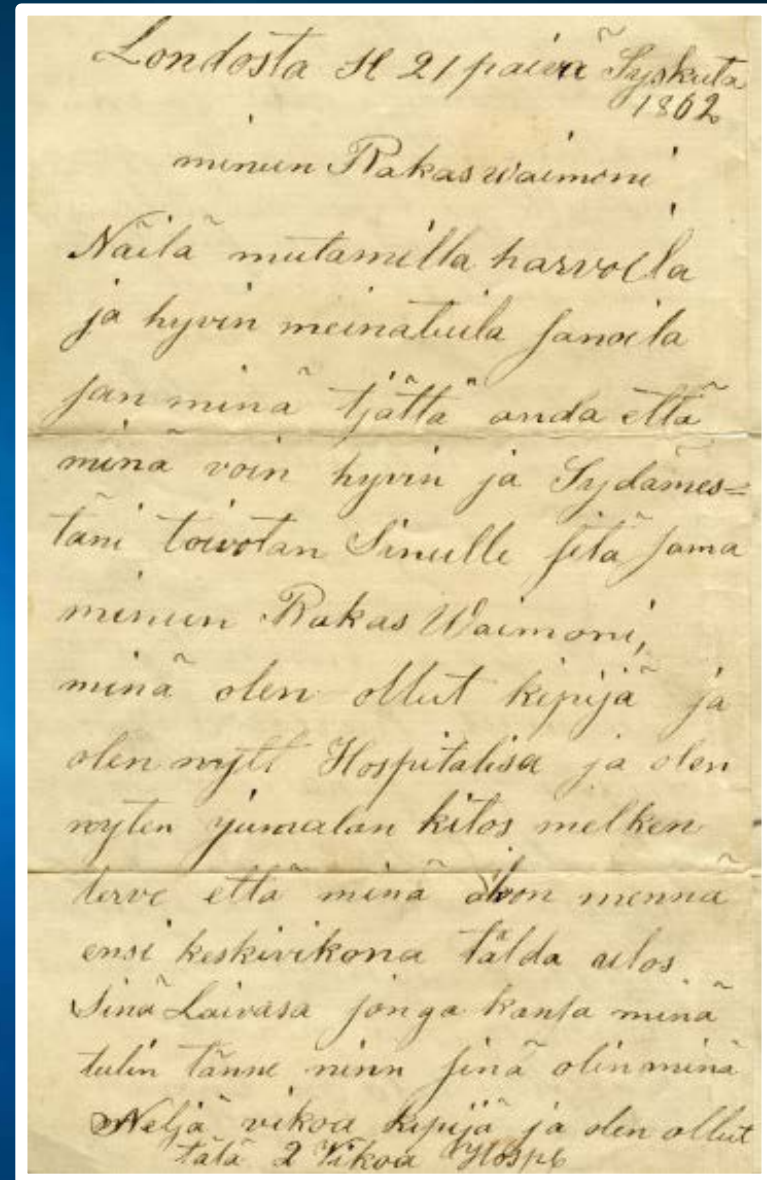 Londosta H 21 päivä Syskuta
1862
minun Rakas waimoni
Näilä mutamilla harvoila
ja hyvin meinatuila sanoila
san minä tjättä anda että
minä voin hyvin ja Sydämes=
täni toivotan Sinulle sitä sama
minun Rakas Waimoni,
minä olen ollut kipijä ja
olen nytt Hospitalisa ja olen
nyten jumalan kitos melken
terve että minä menna
ensi keskivikona tälda ulos
Sinä Laivasa jonga kansa minä
tulin tänne ninn sinä olin minä
Neljä vikoa kipijä ja olen ollut
tälä 2 Vikoa Hospt